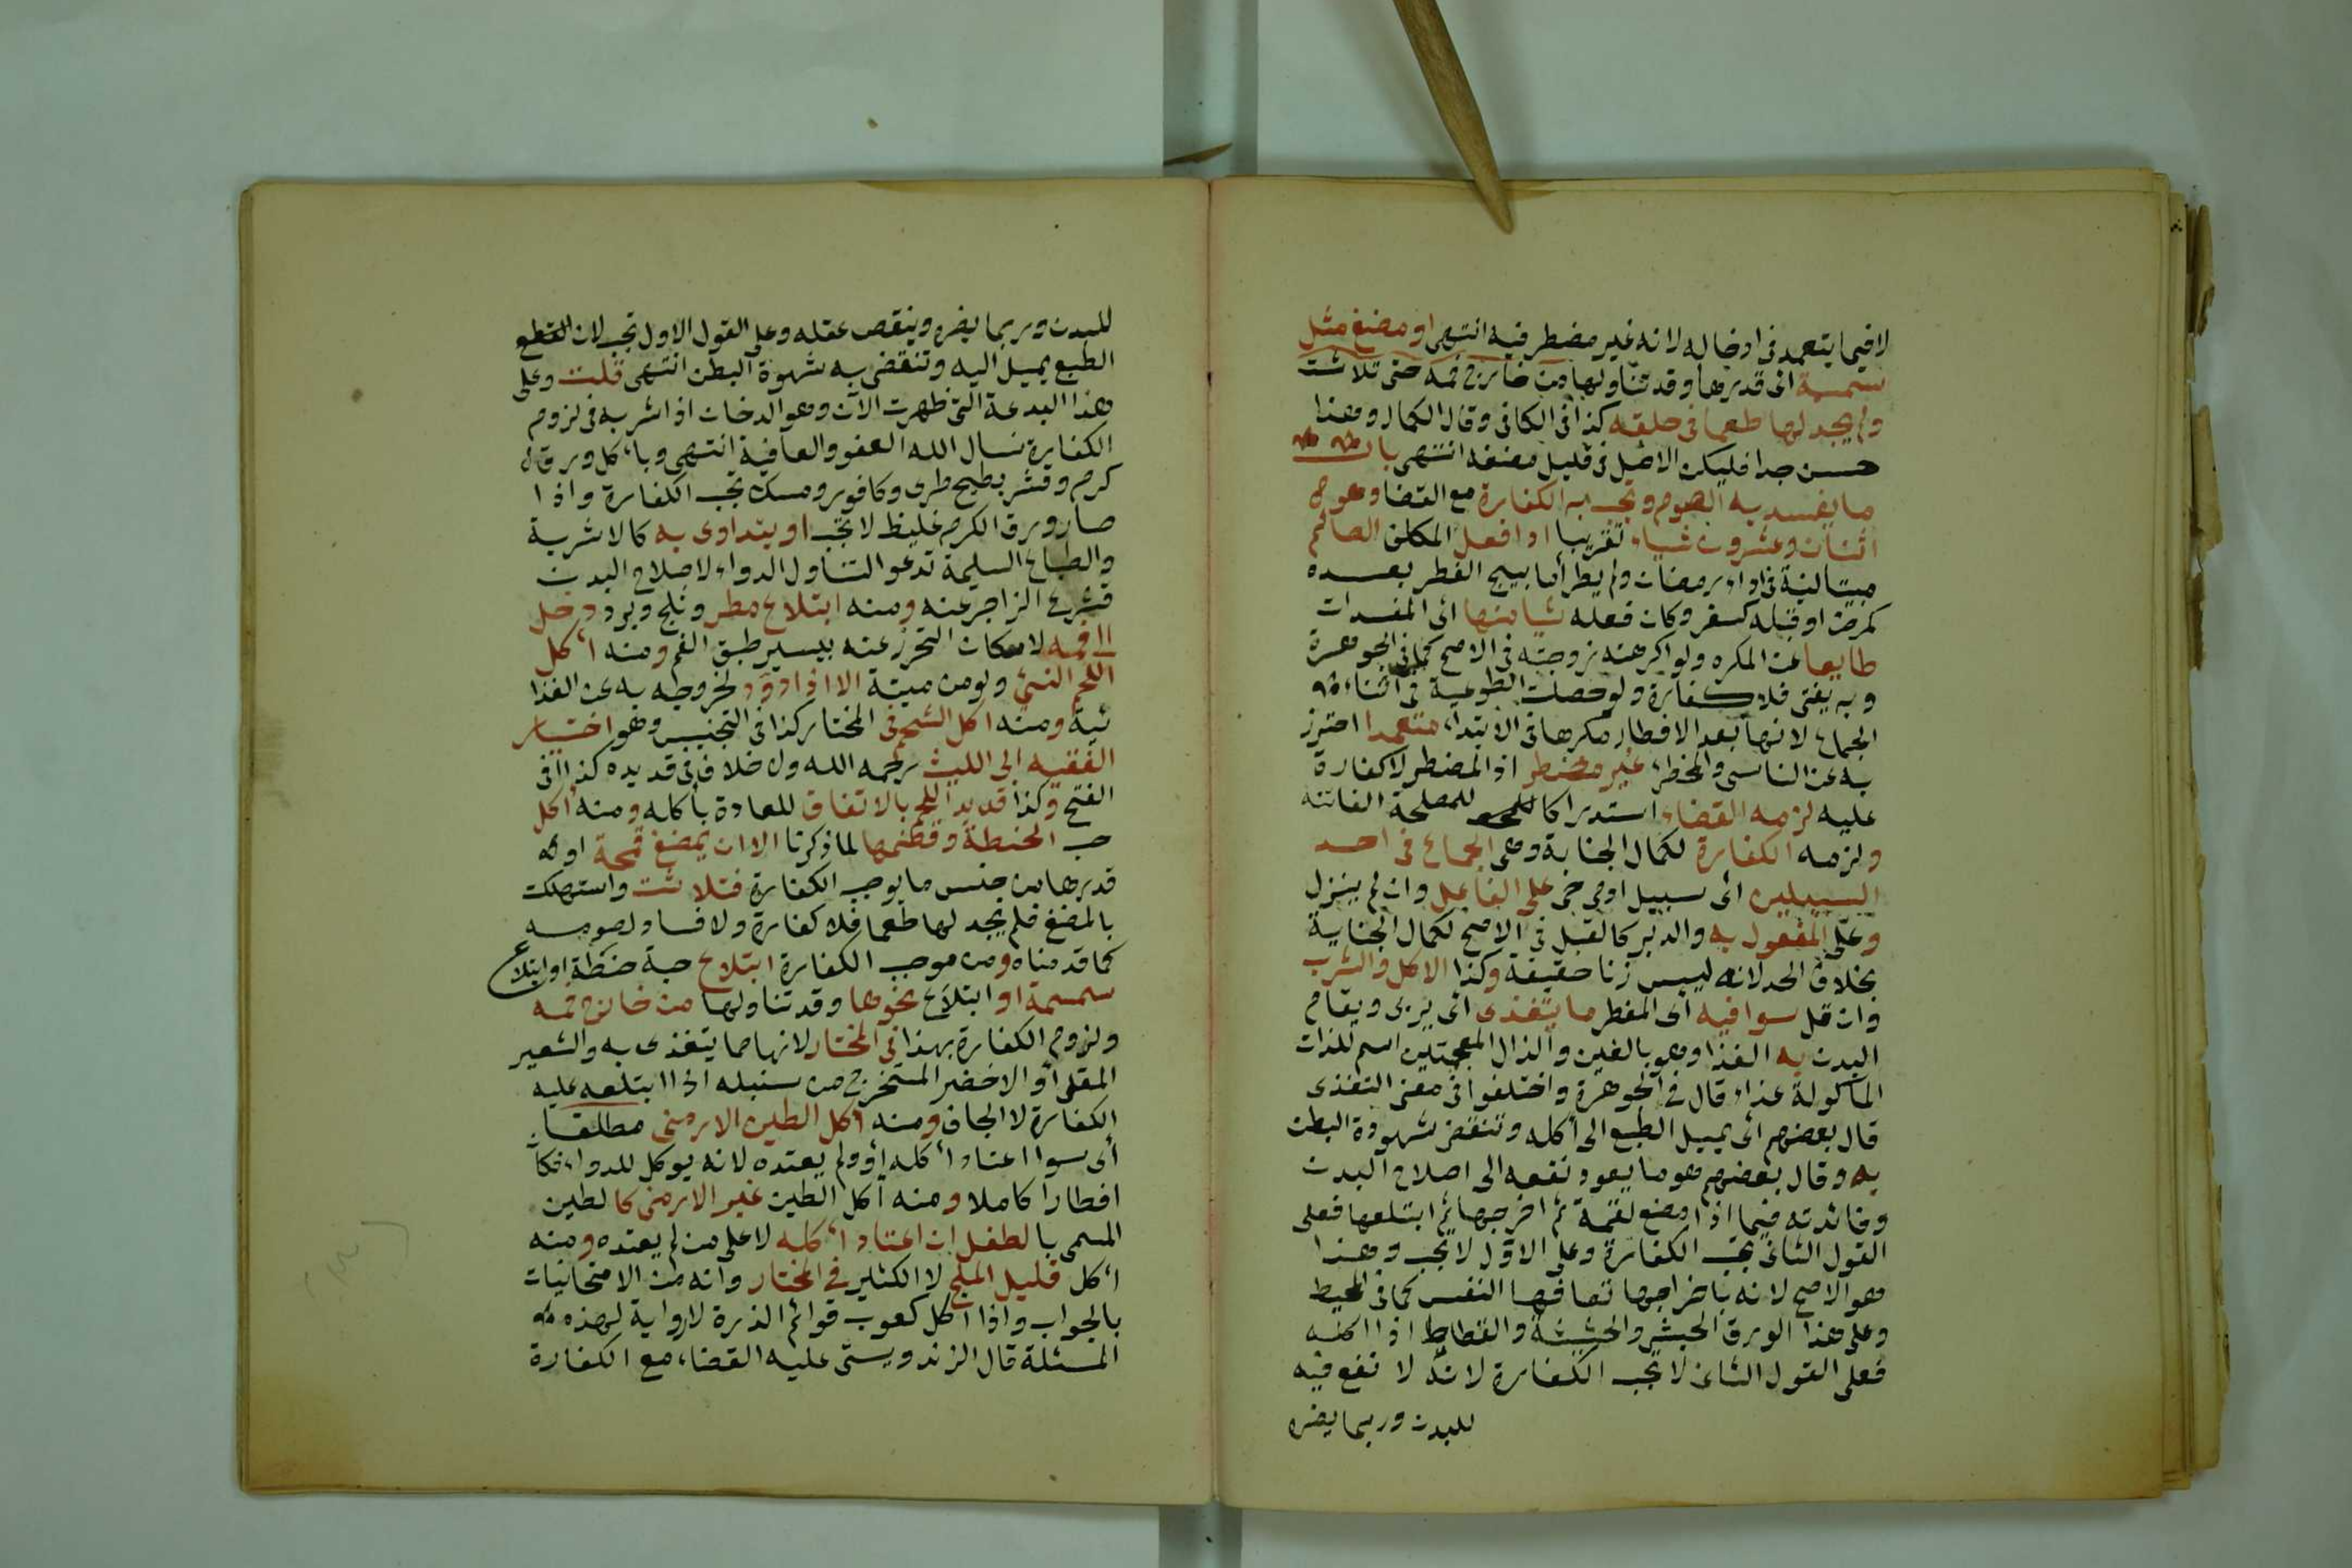 لا فيما يتعمد في ادخاله لانه غير مضطر فيه انتهى او مضغ مثل
سمسمة اى قدرها وقد تناولها من خارج فمه حتى تلاشت
ولم يجد لها طعما في حلقه كذا في الكافى وقال الكمال وهذا
حسن جدا فليكن الاصل في قليل مضغه انتهى باب
ما يفسد به الصوم وتجب به الكفارة مع القضا وهو
اثنان وعشرون شياء تقريبا اذا فعل المكلف الصائم
مبيتا لنية في اداء رمضان ولم يطرأ ما يبيح الفطر بعده
كمرض او قبله كسفر وكان فعله شيا منها اى المفسدات
طايعا عن المكره ولو اكرهته زوجته في الاصح كما في الجوهرة
وبه يفتى فلا كفارة ولو حصلت الطوعية في اثناء
الجماع لانها بعد الافطار مكرها في الابتداء متعمدا احترز
به عن الناسى والمخطئ غير مضطر اذ المضطر لا كفارة
عليه لزمه القضاء استدراكا للمصلحة الفائتة
ولزمه الكفارة لكمال الجناية وهى الجماع في احد
السبيلين اى سبيل ادمى حى على الفاعل وان لم ينزل
وعلى المفعول به والدبر كالقبل في الاصح لكمال الجناية
بخلاف الحد لانه ليس زنا حقيقة وكذا الاكل والشرب
وان قل سوا فيه اى المفطر ما يتغذى اى يربى ويقام
البدن به الغذا وهو بالغين والذال المعجمتين اسم للذات
الماكولة غذاء قال في الجوهرة واختلفوا في معنى التغذى
قال بعضهم اى يميل الطبع الى اكله وتنقض شهوة البطن
به وقال بعضهم هو ما يعود نفعه الى اصلاح البدن
وفائدته فيما اذا مضغ لقمة ثم اخرجها ثم ابتلعها فعلى
القول الثانى تجب الكفارة وعلى الاول لا تجب وهذا
هو الاصح لانه باخراجها تعافها النفس كما في المحيط
وعلى هذا الورق الحبشى والحشيشة والقطاط اذا اكله
فعلى القول الثانى لا تجب الكفارة لانه لا نفع فيه
للبدن وربما يضره
للبدن وربما يضره وينقص عقله وعلى القول الاول تجب لان القطع
الطبع يميل اليه وتنقضى به شهوة البطن انتهى قلت وعلى
هذا البدعة التى ظهرت الآن وهو الدخان اذا شربه في لزوم
الكفارة نسال الله العفو والعافية انتهى وباكل ورق
كرم وقشر بطيخ طرى وكافور ومسك تجب الكفارة واذا
صار ورق الكرم غليظ لا تجب او يتداوى به كالاشربة
والطباع السليمة تدعو التناول الدواء لاصلاح البدن
فشرع الزاجر عنه ومنه ابتلاع مطر وثلج وبرد دخل
الا فمه لامكان التحرز عنه بيسير طبق الفم ومنه اكل
اللحم النئ ولو من ميتة الا اذا دود لخروجه به عن الغذا
ئية ومنه اكل الشحم في المختار كذا في التجنيس وهو اختيار
الفقيه ابى الليث رحمه الله ولا خلاف في قديده كذا في
الفتح وكذا قديد اللحم بالاتفاق للعادة بأكله ومنه اكل
حب الحنطة وقضمها لما ذكرنا الا ان يمضغ قمحة او
قدرها من جنس ما يوجب الكفارة فتلاشت واستهلكت
بالمضغ فلم يجد لها طعما فلا كفارة ولا فساد لصومه
كما قدمناه ومن موجب الكفارة ابتلاع حبة حنطة او ابتلاع
سمسمة او ابتلاع نحوها وقد تناولها من خارج فمه
ولزوم الكفارة بهذا في المختار لانها مما يتغذى به والشعير
المقلى او الاخضر المستخرج من سنبله اذا ابتلعه عليه
الكفارة لا الجاف ومنه اكل الطين الارمنى مطلقا
أى سوا اعتاد أكله أو ولم يعتده لانه يوكل للدواء فكان
افطارا كاملا ومنه أكل الطين غير الارمنى كالطين
المسمى بالطفل ان اعتاد أكله لا على من لم يعتده ومنه
أكل قليل الملح لا الكثير في المختار وانه من الامتحانيات
بالجواب واذا اكل كعوب قوائم الذرة لا رواية لهذه
المسئلة قال الزندويستى عليه القضاء مع الكفارة